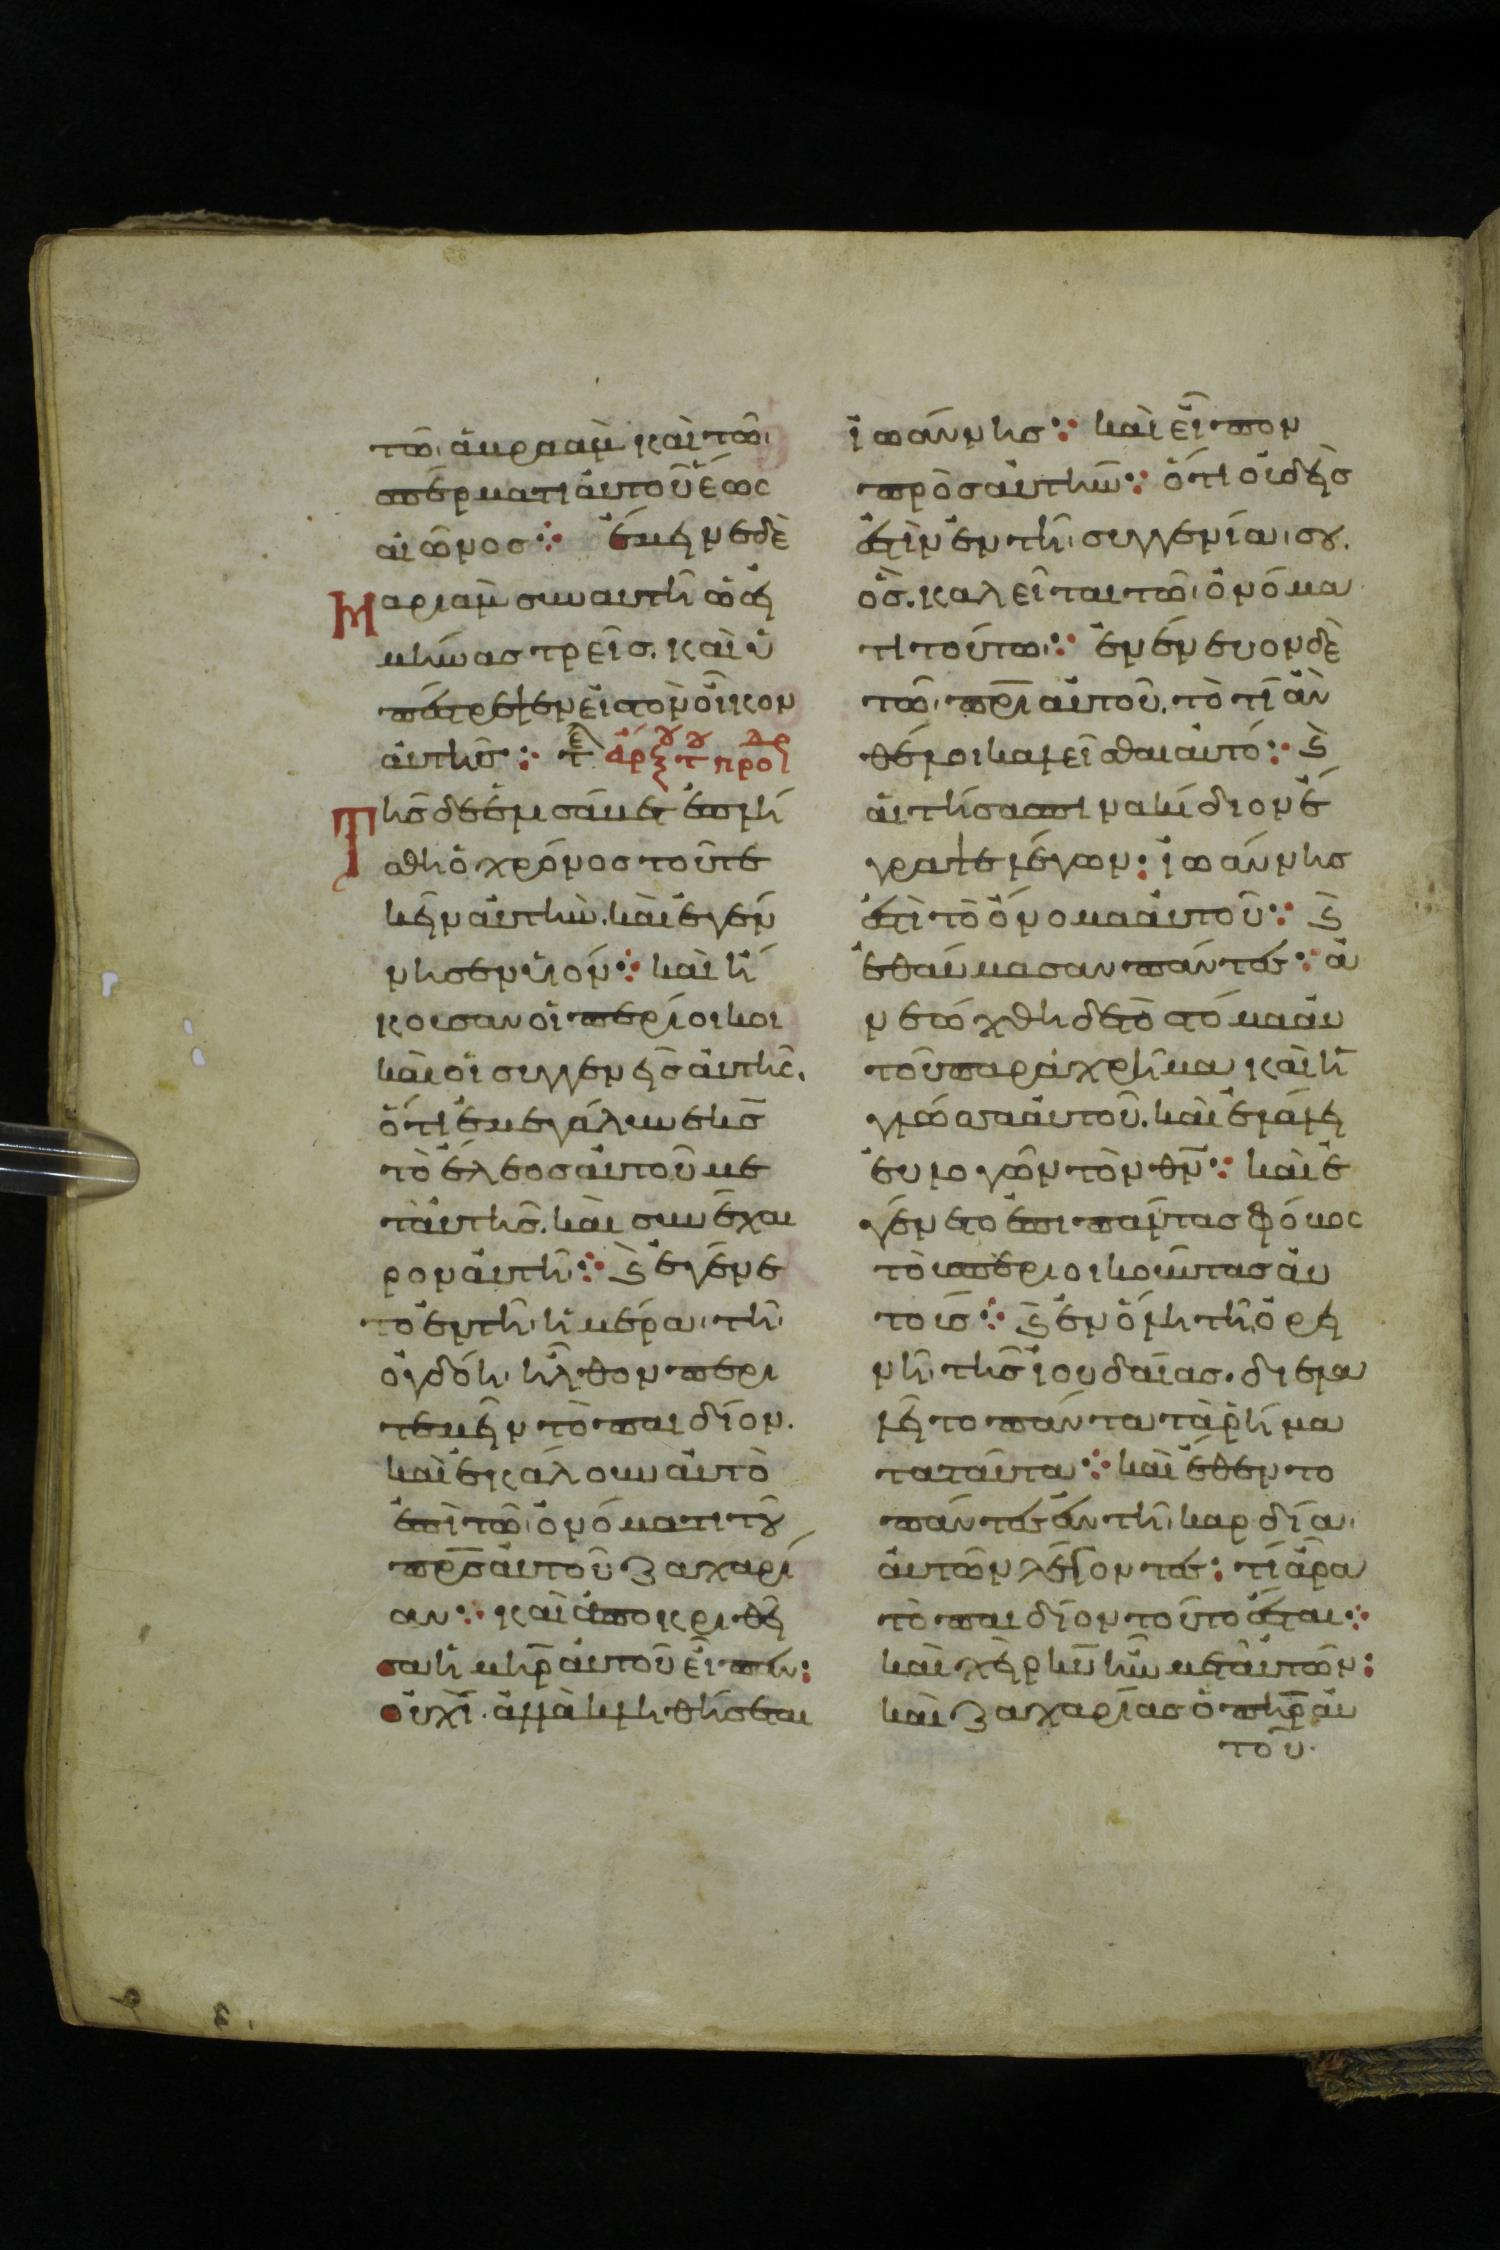 τῶ· ἀβραὰμ καὶ τῶ·
σπέρματι αὐτοῦ ἕως
αἰῶνος ⁘ ἔμεινε δὲ
Μαριὰμ σὺν αυτῆ ὡσεὶ
μῆνας τρεῖσ. καὶ ὑ
πέστρεψεν εἰς τὸν οἶκον
ἀυτῆς ⁘ τε αρξου του προδρ
Τῆς δε ἐλισάβετ ἐπλή
σθη ὁ χρόνος τοῦ τε
κεῖν αὐτήν. καὶ ἐγέν
νησεν ὑιόν ⁘ καὶ ἤ
κουσαν οἱ περίοικοι
καὶ οἱ συγγενεῖς ἀυτῆς.
ὅτι ἐμεγάλυνε κς
τὸ ἔλεος αὐτοῦ με
τ᾽ ἀυτῆς. καὶ συνέχαι
ρον ἀυτῆ ⁘ ϗ ἐγένε
το ἐν τῆ· ἡμέρα· τῆ·
ὀγδόη· ἦλθον περι
τεμεῖν τὸ παιδίον.
καὶ ἐκάλουν ἀυτὸ
ἐπὶ τῶ· ὀνόματι τοῦ
πρς αὐτοῦ ζαχαρί
αν ⁘ καὶ ἀποκριθεῖ
σα ἡ μηρ αὐτοῦ εἶπεν:
οὐχί. ἀλλὰ κληθήσεται
ἰωάννης ⁘ καὶ εἶπον
πρὸς αὐτὴν ⁘ ὅτι οὐδείς
ἐστιν ἐν τῆ· συγγενεία· σου.
ὃς. καλεῖται τῶ· ὀνόμα
τι τούτω· ⁘ ἐνένευον δὲ
τῶ· πρι αὐτοῦ. τὸ τί ἂν
θέλοι καλεῖσθαι ἀυτό: ϗ
αἰτήσας πινακίδιον ἔ
γραψε λέγων: ἰωάννης
ἐστὶ τὸ ὄνομα ἀυτοῦ ⁘ ϗ
ἐθαύμασαν πάντες ⁘ ἀ
νεώχθη δὲ τὸ στόμα ἀυ
τοῦ παραχρῆμα καὶ ἡ
γλῶσσα ἀυτοῦ. καὶ ἐλάλει
ἐυλογῶν τὸν θν ⁘ καὶ ἐ
γένετο ἐπι πάντας φόβος
τοὺς περιοικοῦντας ἀυ
τοῖς ⁘ ϗ ἐν ὅλη τῆ ὀρει
νῆ· τῆς ἰουδαίας. διελα
λεῖτο πάντα τὰ ῥήμα
τα ταῦτα ⁘ καὶ ἔθεντο
πάντες ἐν τῆ· καρδία·
ἀυτῶν λέγοντες: τί ἄρα
τὸ παιδίον τοῦτο ἔσται ⁘
καὶ χεὶρ κυ ἦν μετ᾽ ἀυτῶν:
καὶ ζαχαρίας ὁ πηρ ἀυ
τοῦ.